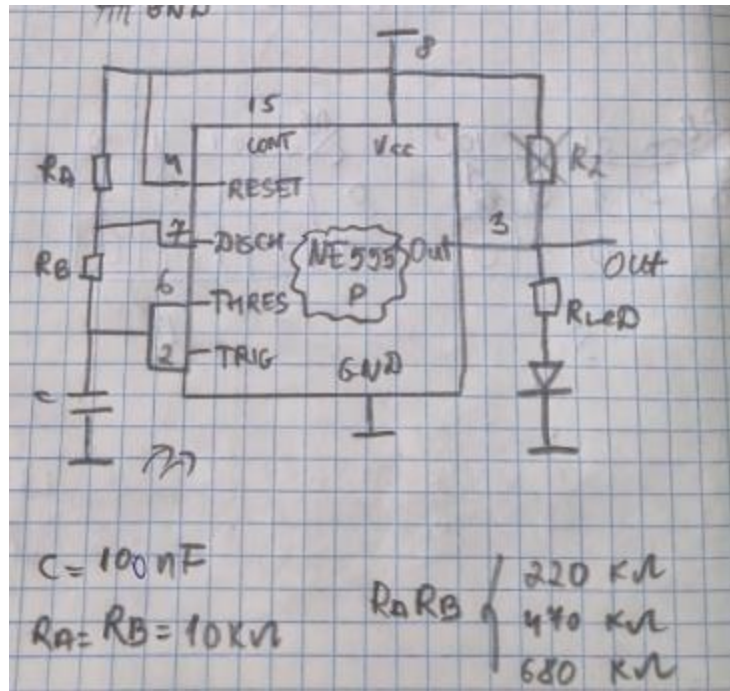 GND
8
15
CONT
Vcc
RA
4
RESET
R2
7
DISCH
NE555
P
Out
3
Out
RB
6
THRES
RLED
2
TRIG
GND
C
C = 100 nF
RA = RB = 10 KΩ
RA RB
220 KΩ
470 KΩ
680 KΩ